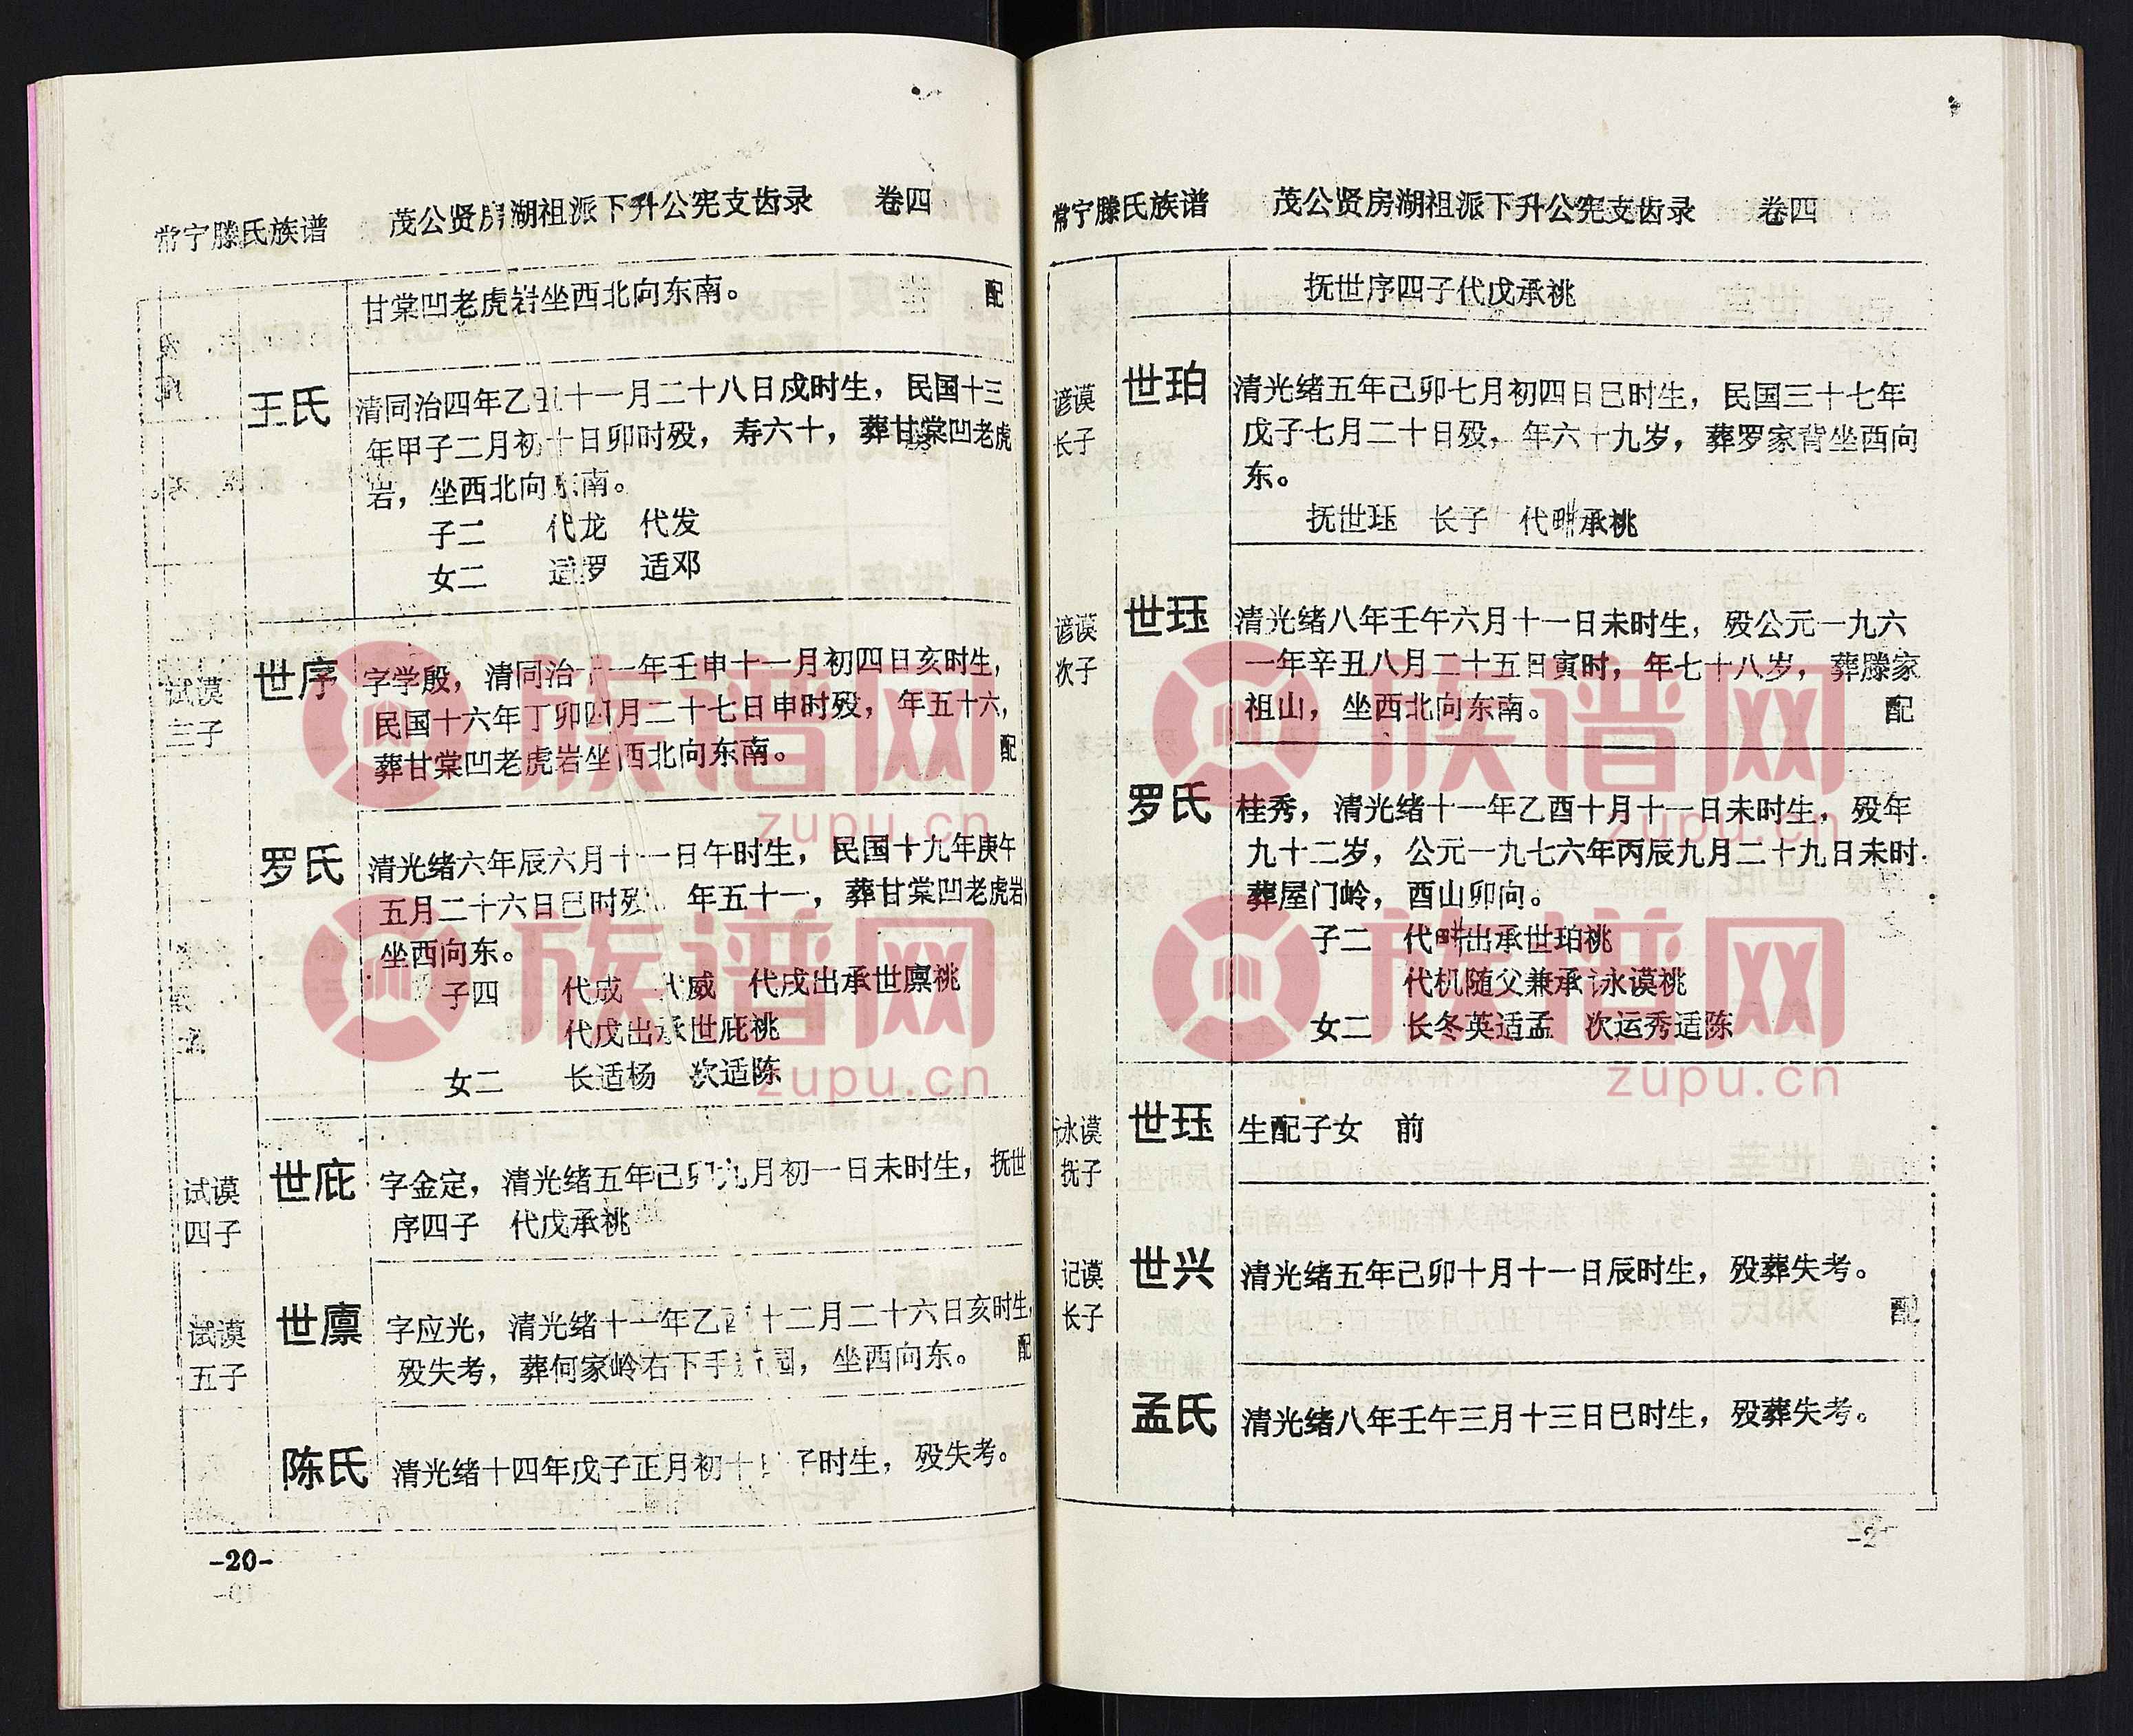 常宁滕氏族谱 茂公贤房湖祖派下升公宪支齿录 卷四
甘棠凹老虎岩坐西北向东南。 配
王氏 清同治四年乙丑十一月二十八日戍时生，民国十三
年甲子二月初十日卯时殁，寿六十，葬甘棠凹老虎
岩，坐西北向东南。
子二 代龙 代发
女二 适罗 适邓
试谟三子 世序 字学殷，清同治十一年壬申十一月初四日亥时生，
民国十六年丁卯四月二十七日申时殁，年五十六，
葬甘棠凹老虎岩坐西北向东南。 配
罗氏 清光绪六年辰六月十一日午时生，民国十九年庚午
五月二十六日巳时殁，年五十一，葬甘棠凹老虎岩
坐西向东。
子四 代成 代威 代戌出承世廪祧
代戊出承世庇祧
女二 长适杨 次适陈
试谟四子 世庇 字金定，清光绪五年己卯九月初一日未时生，抚世
序四子 代戊承祧
试谟五子 世廪 字应光，清光绪十一年乙酉十二月二十六日亥时生，
殁失考，葬何家岭右下手园，坐西向东。 配
陈氏 清光绪十四年戊子正月初十日子时生，殁失考。
-20-
常宁滕氏族谱 茂公贤房湖祖派下升公宪支齿录 卷四
抚世序四子代戊承祧
谚谟长子 世珀 清光绪五年己卯七月初四日巳时生，民国三十七年
戊子七月二十日殁，年六十九岁，葬罗家背坐西向
东。
抚世珏 长子 代畊承祧
谚谟次子 世珏 清光绪八年壬午六月十一日未时生，殁公元一九六
一年辛丑八月二十五日寅时，年七十八岁，葬滕家
祖山，坐西北向东南。 配
罗氏 桂秀，清光绪十一年乙酉十月十一日未时生，殁年
九十二岁，公元一九七六年丙辰九月二十九日未时.
葬屋门岭，酉山卯向。
子二 代畊出承世珀祧
代机随父兼承詠谟祧
女二 长冬英适孟 次运秀适陈
詠谟抚子 世珏 生配子女 前
记谟长子 世兴 清光绪五年己卯十月十一日辰时生，殁葬失考。
配
孟氏 清光绪八年壬午三月十三日巳时生，殁葬失考。
族谱网
zupu.cn
族谱网
zupu.cn
族谱网
zupu.cn
族谱网
zupu.cn